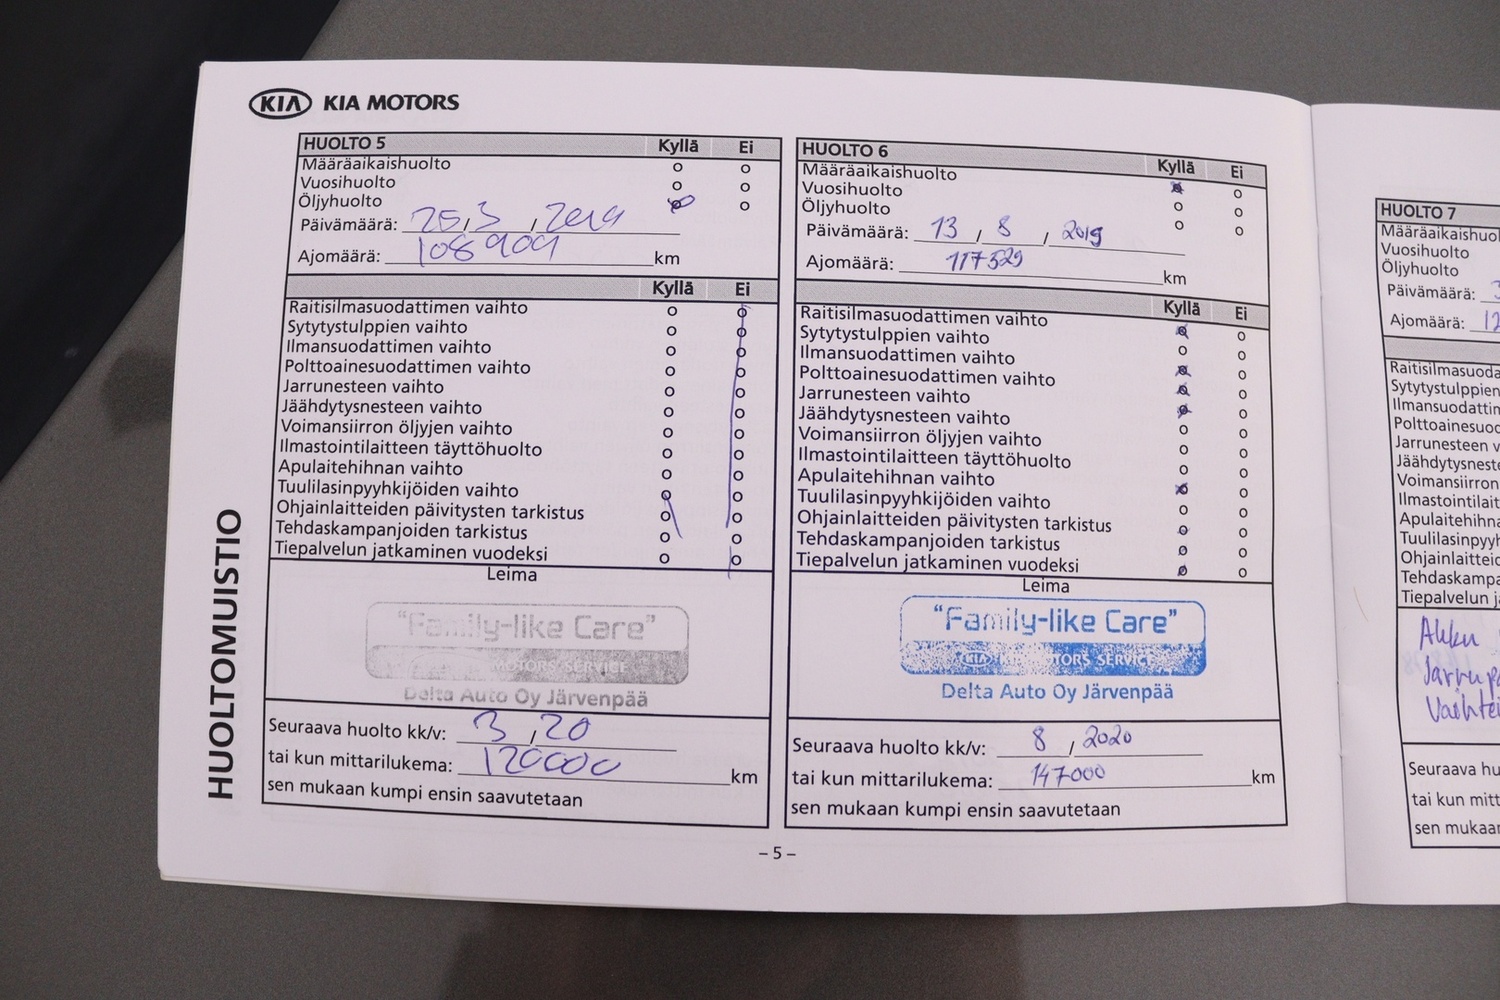 KIA KIA MOTORS
HUOLTOMUISTIO
HUOLTO 5 Kyllä Ei
Määräaikaishuolto o o
Vuosihuolto o o
Öljyhuolto o o
Päivämäärä: 25,3,2019
Ajomäärä: 108909 km
Kyllä Ei
Raitisilmasuodattimen vaihto o o
Sytytystulppien vaihto o o
Ilmansuodattimen vaihto o o
Polttoainesuodattimen vaihto o o
Jarrunesteen vaihto o o
Jäähdytysnesteen vaihto o o
Voimansiirron öljyjen vaihto o o
Ilmastointilaitteen täyttöhuolto o o
Apulaitehihnan vaihto o o
Tuulilasinpyyhkijöiden vaihto o o
Ohjainlaitteiden päivitysten tarkistus o o
Tehdaskampanjoiden tarkistus o o
Tiepalvelun jatkaminen vuodeksi o o
Leima
"Family-like Care"
MOTORS SERVICE
Delta Auto Oy Järvenpää
Seuraava huolto kk/v: 3,20
tai kun mittarilukema: 120000 km
sen mukaan kumpi ensin saavutetaan
HUOLTO 6 Kyllä Ei
Määräaikaishuolto o o
Vuosihuolto o o
Öljyhuolto o o
Päivämäärä: 13,8,2019
Ajomäärä: 117529 km
Kyllä Ei
Raitisilmasuodattimen vaihto o o
Sytytystulppien vaihto o o
Ilmansuodattimen vaihto o o
Polttoainesuodattimen vaihto o o
Jarrunesteen vaihto o o
Jäähdytysnesteen vaihto o o
Voimansiirron öljyjen vaihto o o
Ilmastointilaitteen täyttöhuolto o o
Apulaitehihnan vaihto o o
Tuulilasinpyyhkijöiden vaihto o o
Ohjainlaitteiden päivitysten tarkistus o o
Tehdaskampanjoiden tarkistus o o
Tiepalvelun jatkaminen vuodeksi o o
Leima
"Family-like Care"
KIA MOTORS SERVICE
Delta Auto Oy Järvenpää
Seuraava huolto kk/v: 8,2020
tai kun mittarilukema: 147000 km
sen mukaan kumpi ensin saavutetaan
– 5 –
HUOLTO 7
Määräaikaishuol
Vuosihuolto
Öljyhuolto
Päivämäärä:
Ajomäärä: 12
Raitisilmasuoda
Sytytystulppien
Ilmansuodattin
Polttoainesuod
Jarrunesteen v
Jäähdytysneste
Voimansiirron
Ilmastointilait
Apulaitehihna
Tuulilasinpyyh
Ohjainlaitteid
Tehdaskampa
Tiepalvelun ja
Akku
Jarrup
Vaihte
Seuraava hu
tai kun mitt
sen mukaan